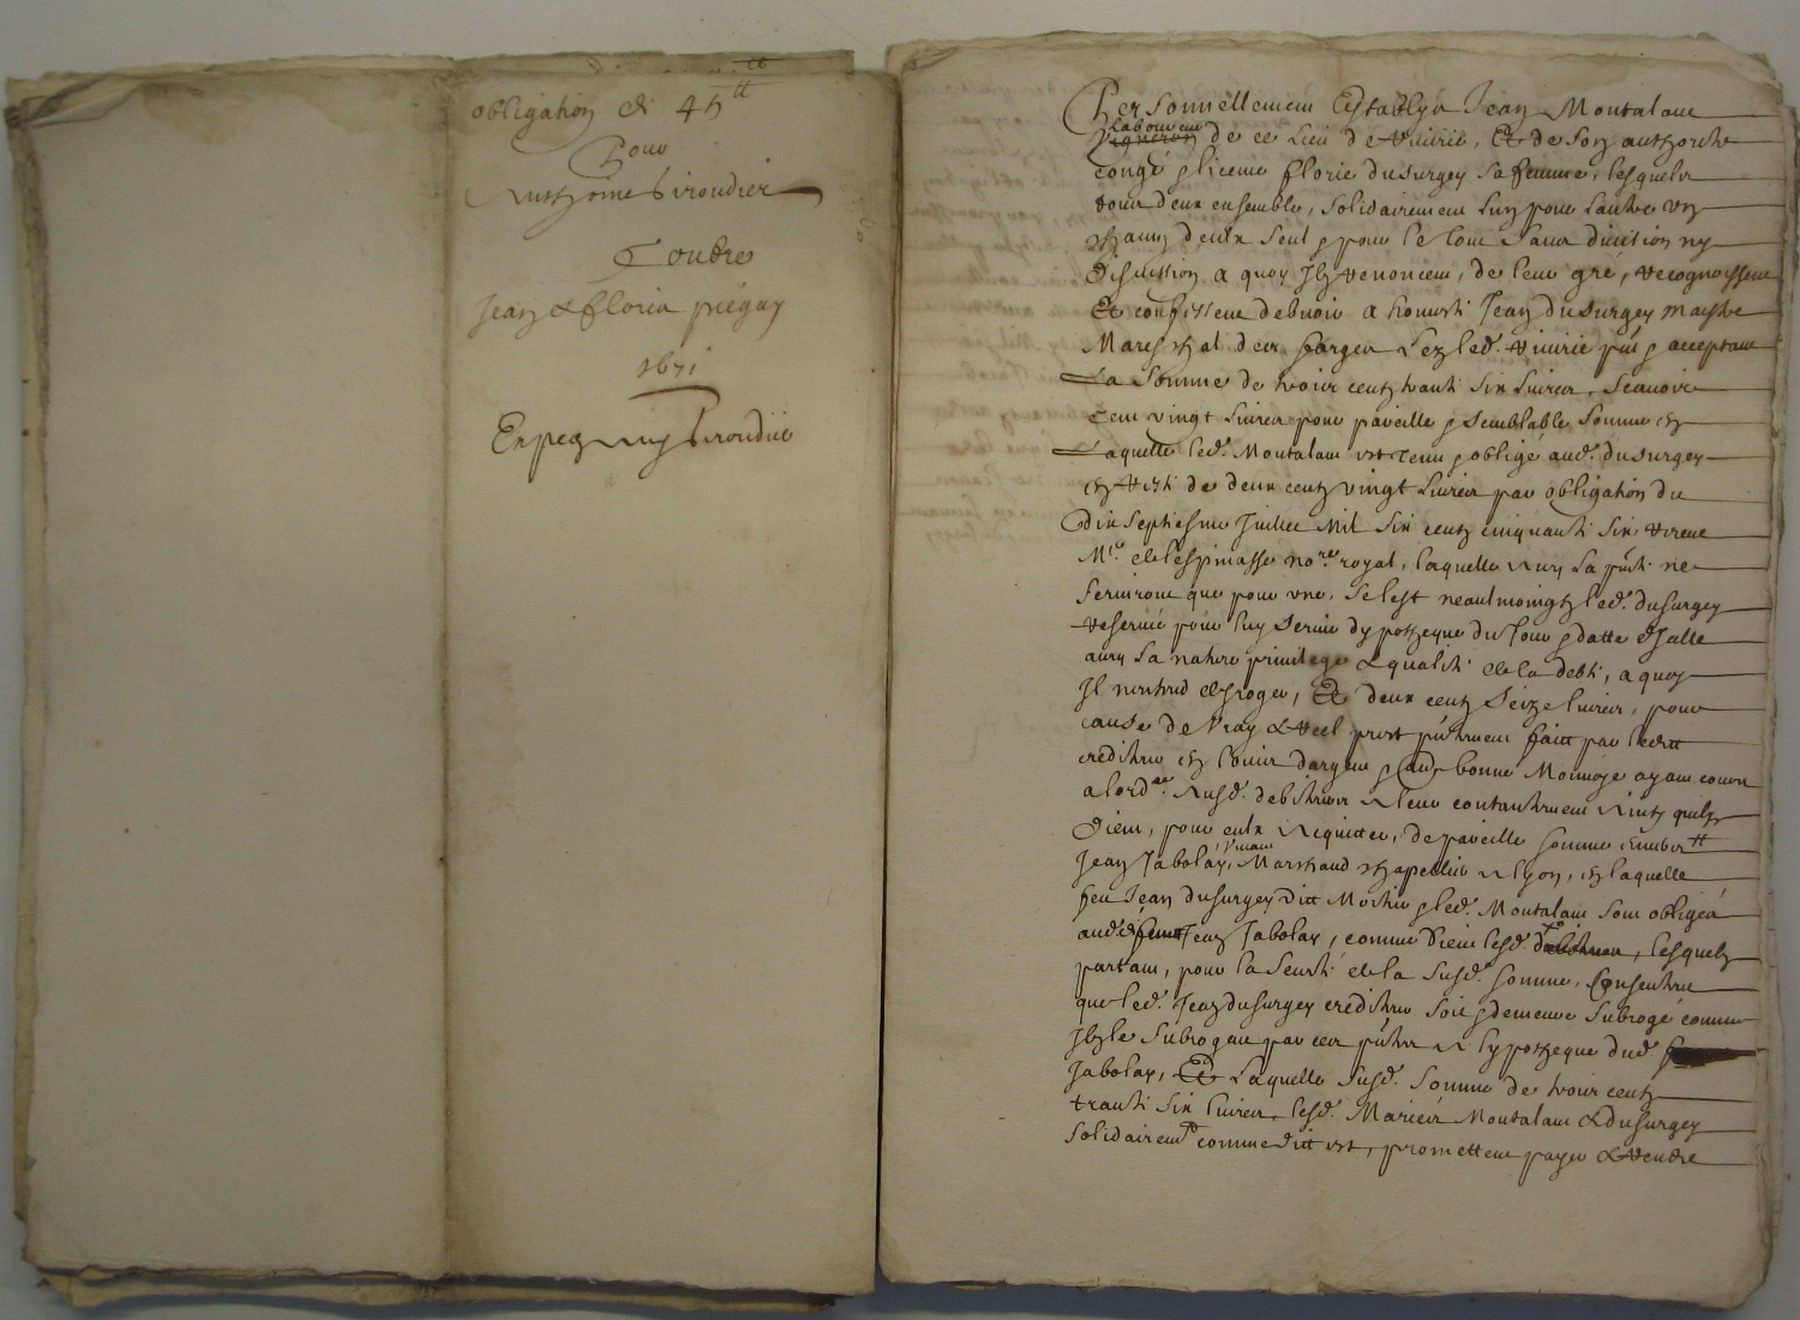 obligation de 45 ₶
Pour
Anthoine Pirondier
Contre
Jean & Floris piégay
1671
Expez Any Pirondier
Personnellement Establys Jean Montalant
vigneron laboureur de ce Lieu de viuirie, Et de son authorité
congé & licence florie dusurgey sa femme, lesquels
tous deux ensemble, solidairement lun pour lautre un
chacun deulx seul & pour le tout sans diuition ny
discution a quoy Ilz renoncent, de leur gré, recognoissent
Et confessent debuoir a honneste Jean dusurgey maistre
Mareschal des forges Lez led. viuirie pnt & acceptant
La somme de trois centz trante six liures, scauoir
cent vingt liures pour pareille & semblable somme en
Laquelle led. Montalant est tenu & obligé aud. dusurgey
en reste de deux centz vingt liures par obligation du
dix septiesme Juillet mil six centz cinquante six receue
Me. delespinasse nore. royal, laquelle Auec la pnte ne
seruiront que pour une, sestant neaulmoingtz led. dusurgey
reserué pour luy seruir dypotheque du Jour & datte dJcelle
auec sa nature priuilege & qualité de la debte, a quoy
Il nentend desroger, Et deux centz seize liures, pour
cause de vray & reel prest pntement faict par ledit
crediteur en louis dargent & aud. bonne Monnoye ayant cours
a lord.ce Ausd. debiteurs A leur contantement Ainsy quilz
dient, pour eulx Acquitter, de pareille somme enuers
Jean Jabolay, viuant Marchand chapellier A lyon, en laquelle
feu Jean dusurgey dit Mochin & led. Montalant sont obligés
aud. deffunct Jean Jabolay, comme dient lesd. debiteurs, lesquelz
partant, pour la seurté de la susd. somme, Consentent
que led. Jean dusurgey crediteur soit & demeure subrogé comme
Ilz le subrogent par ces pntes A lypotheque dud.
Jabolay, Et Laquelle susd. somme de trois centz
trante six liures, lesd. Mariés Montalant & dusurgey
solidairemt comme dit est, promettent payer & rendre